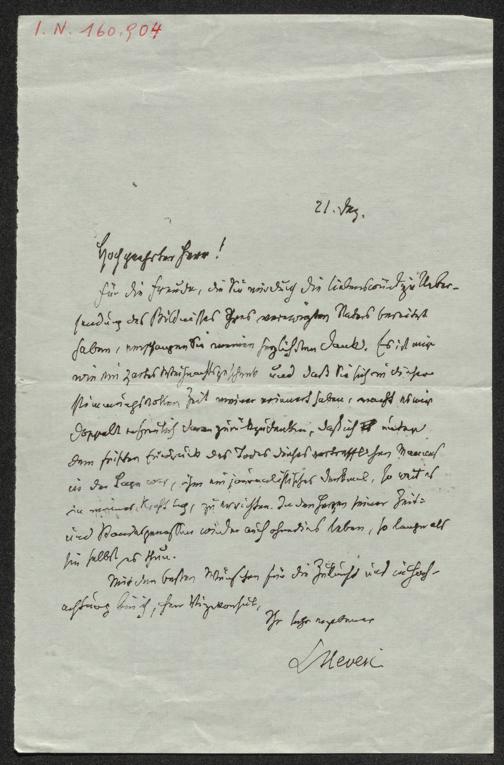 I. N. 160.904
21. Dez.
Hochgeehrter Herr!
Für die Freude, die Sie mir durch die liebenswürdige Ueber-
sendung des Bildnisses Ihres verewigten Vaters bereitet
haben, empfangen Sie meinen herzlichsten Dank. Es ist mir
wie ein zartes Weihnachtsgeschenk und daß Sie sich in dieser
stimmungsvollen Zeit meiner erinnert haben, macht es mir
doppelt erfreulich daran zurückzudenken, daß ich unter
dem frischen Eindruck des Todes dieses vortrefflichen Mannes
in der Lage war, ihm ein journalistisches Denkmal, so weit es
in meiner Kraft lag, zu errichten. In den Herzen seiner Zeit-
und Standesgenossen wird er auch ohnedies leben, so lange als
sie selbst es thun.
Mit den besten Wünschen für die Zukunft und in Hoch-
achtung bin ich, Herr Vizekonsul,
Ihr sehr ergebener
LHevesi